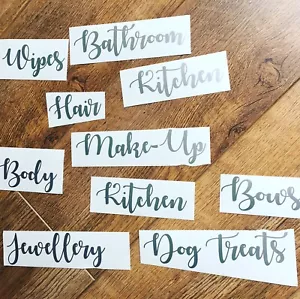 Bathroom
Wipes
Kitchen
Hair
Make-Up
Body
Kitchen
Bows
Jewellery
Dog treats